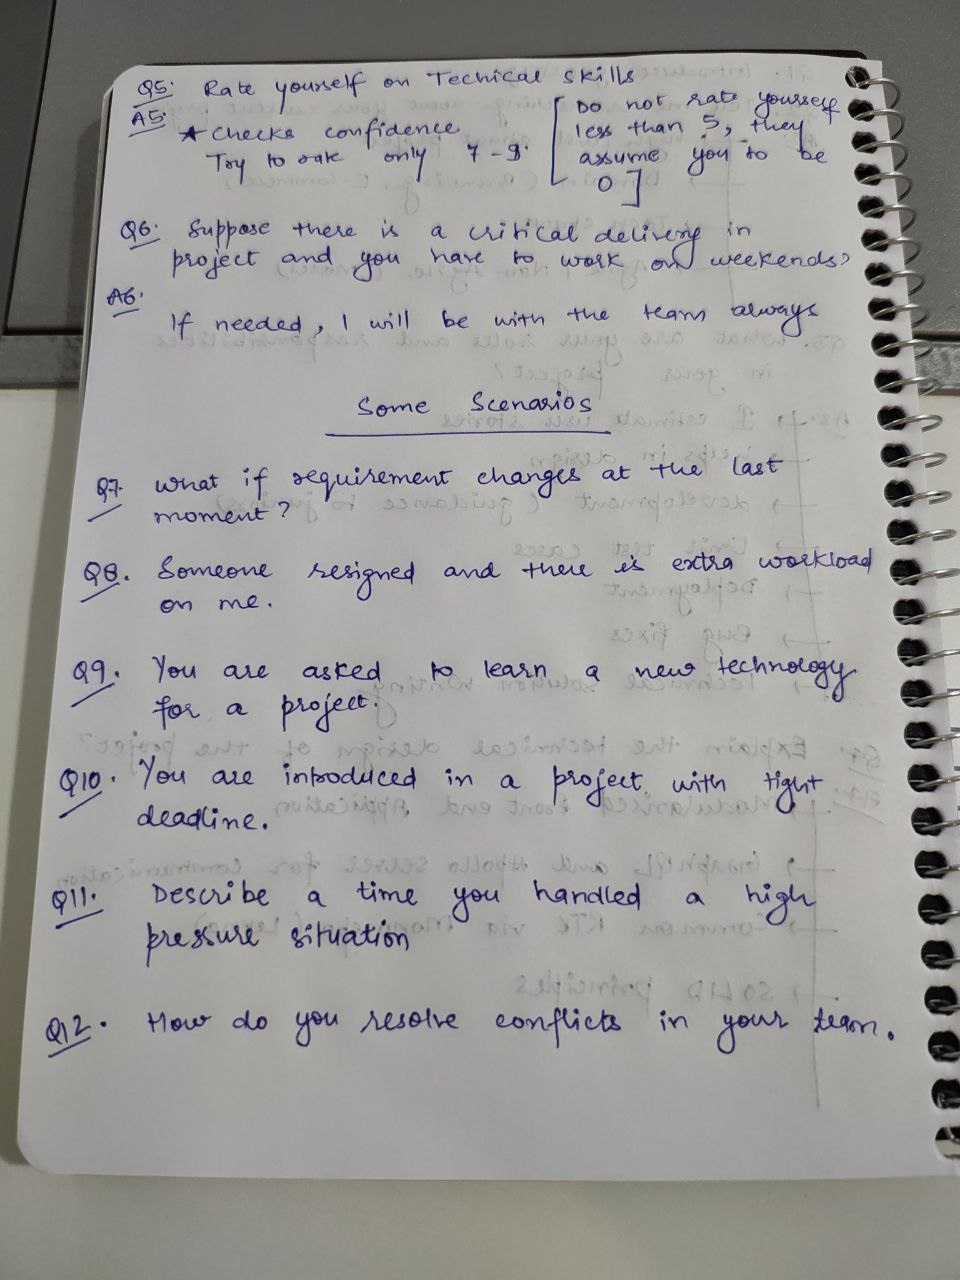 Q5. Rate yourself on Techical skills
A5. * Checks confidence
Try to rate only 7-9.
[Do not rate yourself
less than 5, they
assume you to be
0]
Q6. Suppose there is a critical delivery in
project and you have to work on weekends?
A6.
If needed, I will be with the team always
Some Scenarios
Q7. What if requirement changes at the last
moment?
Q8. Someone resigned and there is extra workload
on me.
Q9. You are asked to learn a new technology
for a project.
Q10. You are introduced in a project with tight
deadline.
Q11. Describe a time you handled a high
pressure situation
Q12. How do you resolve conflicts in your team.